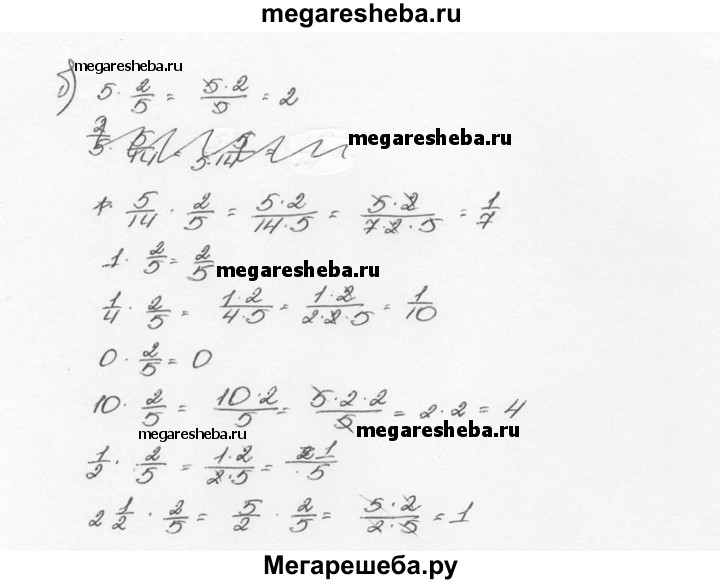 megaresheba.ru
megaresheba.ru
б) 5 · 2/5 = 5·2/5 = 2
megaresheba.ru
5/14 · 2/5 = 5·2/14·5 = 5·2/7·2·5 = 1/7
1 · 2/5 = 2/5
megaresheba.ru
1/4 · 2/5 = 1·2/4·5 = 1·2/2·2·5 = 1/10
0 · 2/5 = 0
10 · 2/5 = 10·2/5 = 5·2·2/5 = 2·2 = 4
megaresheba.ru
megaresheba.ru
1/2 · 2/5 = 1·2/2·5 = 1/5
2 1/2 · 2/5 = 5/2 · 2/5 = 5·2/2·5 = 1
Мегарешеба.ру